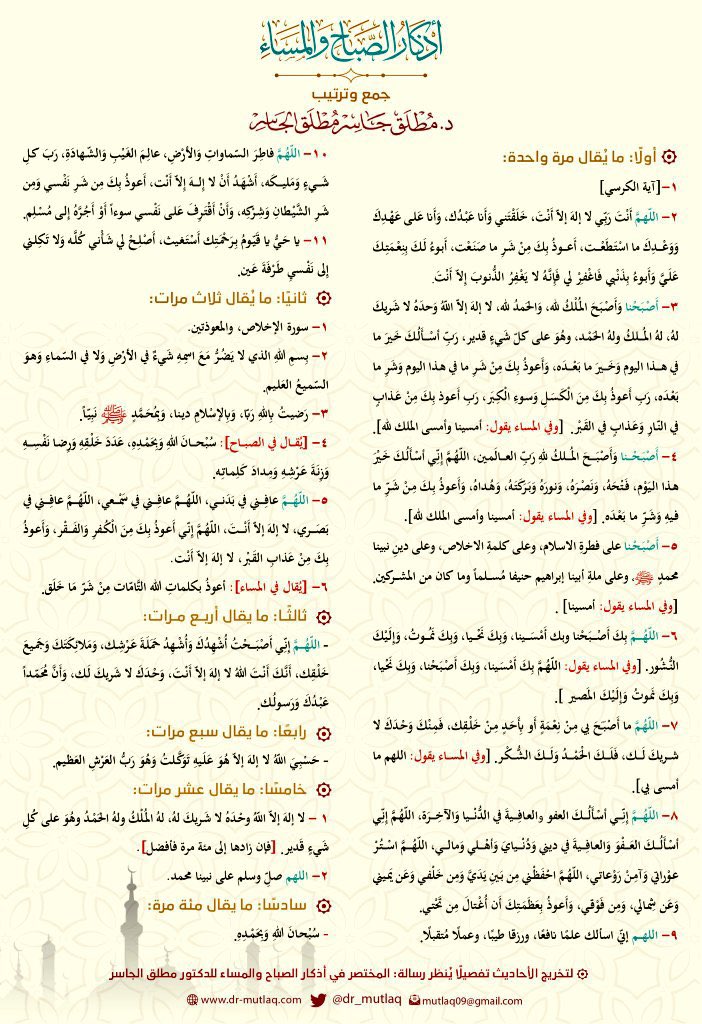 أذكار الصباح والمساء
جمع وترتيب
د. مُطْلَق جَاسِر مُطْلَق الجَاسِر
أولًا: ما يُقال مرة واحدة:
١- [آية الكرسي]
٢- اللّهمَّ أَنْتَ رَبِّي لا إلهَ إلاّ أَنْتَ، خَلَقْتَني وَأنا عَبْدُك، وَأنا عَلى عَهْدِكَ
وَوَعْدِكَ ما اسْتَطَعْت، أَعـوذُ بِكَ مِنْ شَرِ ما صَنَعْت، أبوءُ لَكَ بِنِعْمَتِكَ
عَلَيَّ وَأَبوءُ بِذَنْبي فَاغْفِرْ لي فَإِنَّهُ لا يَغْفِرُ الذُّنوبَ إِلاّ أَنْتَ.
٣- أَصْبَحْنا وَأَصْبَحَ المُلْكُ لله، وَالحَمدُ لله، لا إلهَ إلاّ اللّهُ وَحدَهُ لا شَريكَ
لهُ، لهُ المُـلكُ ولهُ الحَمْـد، وهُوَ على كلّ شَيءٍ قدير، رَبِّ أسْـأَلُـكَ خَيرَ ما
في هـذا اليوم وَخَـيرَ ما بَعْـدَه، وَأَعوذُ بِكَ مِنْ شَرِ ما في هـذا اليوم وَشَرِ ما
بَعْدَه، رَبِ أَعوذُ بِكَ مِنَ الْكَسَلِ وَسوءِ الْكِبَر، رَبِ أَعوذ بِكَ مِنْ عَذابٍ
في النّارِ وَعَذابٍ في القَبْر. [وفي المساء يقول: أمسينا وأمسى الملك لله].
٤- أَصْبَحْـنا وَأَصْبَـحَ المُـلكُ للهِ رَبِّ العـالَمين، اللّهُمَّ إِنِّي أسْأَلُكَ خَيْرَ
هذا اليَوْم، فَتْحَهُ، وَنَصْرَهُ، وَنورَهُ وَبَرَكَتَهُ، وَهُداهُ، وَأَعوذُ بِكَ مِنْ شَرِّ ما
فيهِ وَشَرِّ ما بَعْدَه. [وفي المساء يقول: أمسينا وأمسى الملك لله].
٥- أَصْبَحْنا على فطرةِ الاسلام، وعلى كلمةِ الاخلاص، وعلى دينِ نبينا
محمدٍ ﷺ، وعلى ملةِ أبينا إبراهيم حنيفا مُسـلماً وما كان من المشـركين.
[وفي المساء يقول: أمسينا] .
٦- اللّهُـمَّ بِكَ أَصْـبَحْنا وبك أمْسَـينا، وَبِكَ نَحْـيا، وَبِكَ نَمُـوتُ، وَإِلَيْكَ
النُّشُور. [وفي المساء يقول: اللّهُمَّ بِكَ أَمْسَينا، وَبِكَ أَصْبَحْنا، وَبِكَ نَحْيا،
وَبِكَ نَمُوتُ وَإِلَيْكَ المَصير ].
٧- اللّهُمَّ ما أَصْبَحَ بي مِنْ نِعْمَةٍ أَو بِأَحَدٍ مِنْ خَلْقِك، فَمِنْكَ وَحْدَكَ لا
شريكَ لَـك، فَلَـكَ الْحَمْـدُ وَلَـكَ الشُّـكْر. [وفي المساء يقول: اللهم ما
أمسى بي].
٨- اللّهُـمَّ إِنِّـي أسْأَلُـكَ العفو والعافيةَ في الدُّنْـيا وَالآخِـرَة، اللّهُمَّ إِنِّي
أسْألُـكَ العَـفْوَ وَالعافِـيةَ في ديني وَدُنْـيايَ وَأهْـلي وَمالـي، اللّهُـمَّ اسْـتُرْ
عوْراتي وَآمِنْ رَوْعاتي، اللّهُمَّ احْفَظْني مِن بَينِ يَدَيَّ وَمِن خَلْفي وَعَن يَميني
وَعَن شِمالي، وَمِن فَوْقي، وَأَعوذُ بِعَظَمَتِكَ أَن أُغْتالَ مِن تَحْتي.
٩- اللهـم إنّي اسالك علمًا نافعًا، ورزقا طيبًا، وعملًا مُتقبلًا.
١٠- اللّهُمَّ فاطِرَ السّماواتِ وَالأرْضِ، عالِمَ الغَيْبِ وَالشّهادَةِ، رَبَ كلِ
شَـيءٍ وَمَليـكَه، أَشْهَدُ أَنْ لا إِلـهَ إِلاّ أَنْت، أَعوذُ بِكَ مِن شَرِ نَفْسي وَمِن
شَرِ الشَّيْطانِ وَشِرْكِه، وَأَنْ أَقْتَرِفَ عَلى نَفْسي سوءاً أَوْ أَجُرَّهُ إِلى مُسْلِم.
١١- يا حَيُّ يا قَيّومُ بِرَحْمَتِك أَسْتَغيث، أَصْلِحْ لي شَأْني كُلَّه وَلا تَكِلني
إِلى نَفْسي طَرْفَةَ عَين.
ثانيًا: ما يُقال ثلاث مرات:
١- سورة الإخلاص، والمعوذتين.
٢- بِسمِ اللهِ الذي لا يَضُرُّ مَعَ اسمِهِ شَيءٌ في الأرْضِ وَلا في السّماءِ وَهوَ
السّميعُ العَليم.
٣- رَضيتُ بِاللهِ رَبّا، وَبِالإسْلامِ دينا، وَبِمُحَمَّدٍ ﷺ نَبِيّاً.
٤- [يُقـال في الصبـاح]: سُبْحـانَ اللهِ وَبِحَمْدِهِ، عَدَدَ خَلْقِهِ وَرِضا نَفْسِـهِ
وَزِنَةَ عَرْشِهِ وَمِدادَ كَلِماتِه.
٥- اللّهُـمَّ عافِـني في بَدَنـي، اللّهُـمَّ عافِـني في سَمْـعي، اللّهُـمَّ عافِـني في
بَصَـري، لا إلهَ إلاّ أَنْـتَ، اللّهُمَّ إِنّي أَعوذُ بِكَ مِنَ الْكُفرِ وَالفَـقْر، وَأَعوذُ
بِكَ مِنْ عَذابِ القَبْر، لا إلهَ إلاّ أَنْت.
٦- [يُقال في المساء]: أعوذُ بكلماتِ الله التَّامّات مِنْ شَرِّ مَا خَلَق.
ثالثًا: ما يقال أربع مرات:
- اللّهُـمَّ إِنِّي أَصْبَـحْتُ أُشْهِدُكَ وَأُشْهِدُ حَمَلَةَ عَرْشِك، وَمَلائكَتَكَ وَجَميعَ
خَلْقِك، أَنَّكَ أَنْتَ اللهُ لا إلهَ إلاّ أَنْتَ، وَحْدَكَ لا شَريكَ لَك، وَأَنَّ مُحَمّداً
عَبْدُكَ وَرَسولُك.
رابعًا: ما يقال سبع مرات:
- حَسْبِيَ اللهُ لا إلهَ إلاّ هُوَ عَلَيهِ تَوَكَّلتُ وَهُوَ رَبُّ العَرْشِ العَظيم.
خامسًا: ما يقال عشر مرات:
١ - لا إلهَ إلاّ اللّهُ وحْدَهُ لا شَريكَ لهُ، لهُ المُلْكُ ولهُ الحَمْدُ وهُوَ على كُلِ
شَيءٍ قَدير. [فإن زادها إلى مئة مرة فأفضل].
٢- اللهم صلِّ وسلم على نبينا محمد.
سادسًا: ما يقال مئة مرة:
- سُبْحانَ اللهِ وَبِحَمْدِهِ.
لتخريج الأحاديث تفصيلًا يُنظر رسالة: المختصر في أذكار الصباح والمساء للدكتور مطلق الجاسر
www.dr-mutlaq.com @dr_mutlaq mutlaq09@gmail.com